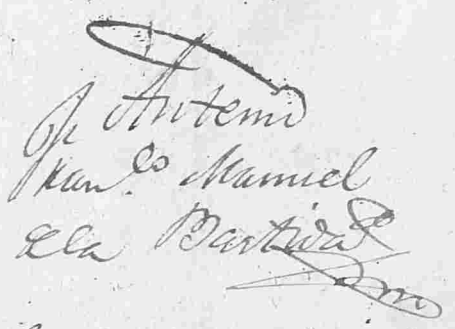 Fr Antonio
Fran.co Manuel
dela Bastida